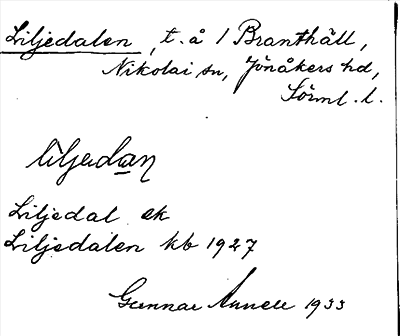 Liljedalen, t. å 1 Branthäll,
Nikolai sn, Jönåkers hd,
Sörml. l.
liljedaɳ
Liljedal ek
Liljedalen kb 1927
Gunnar Annell 1933